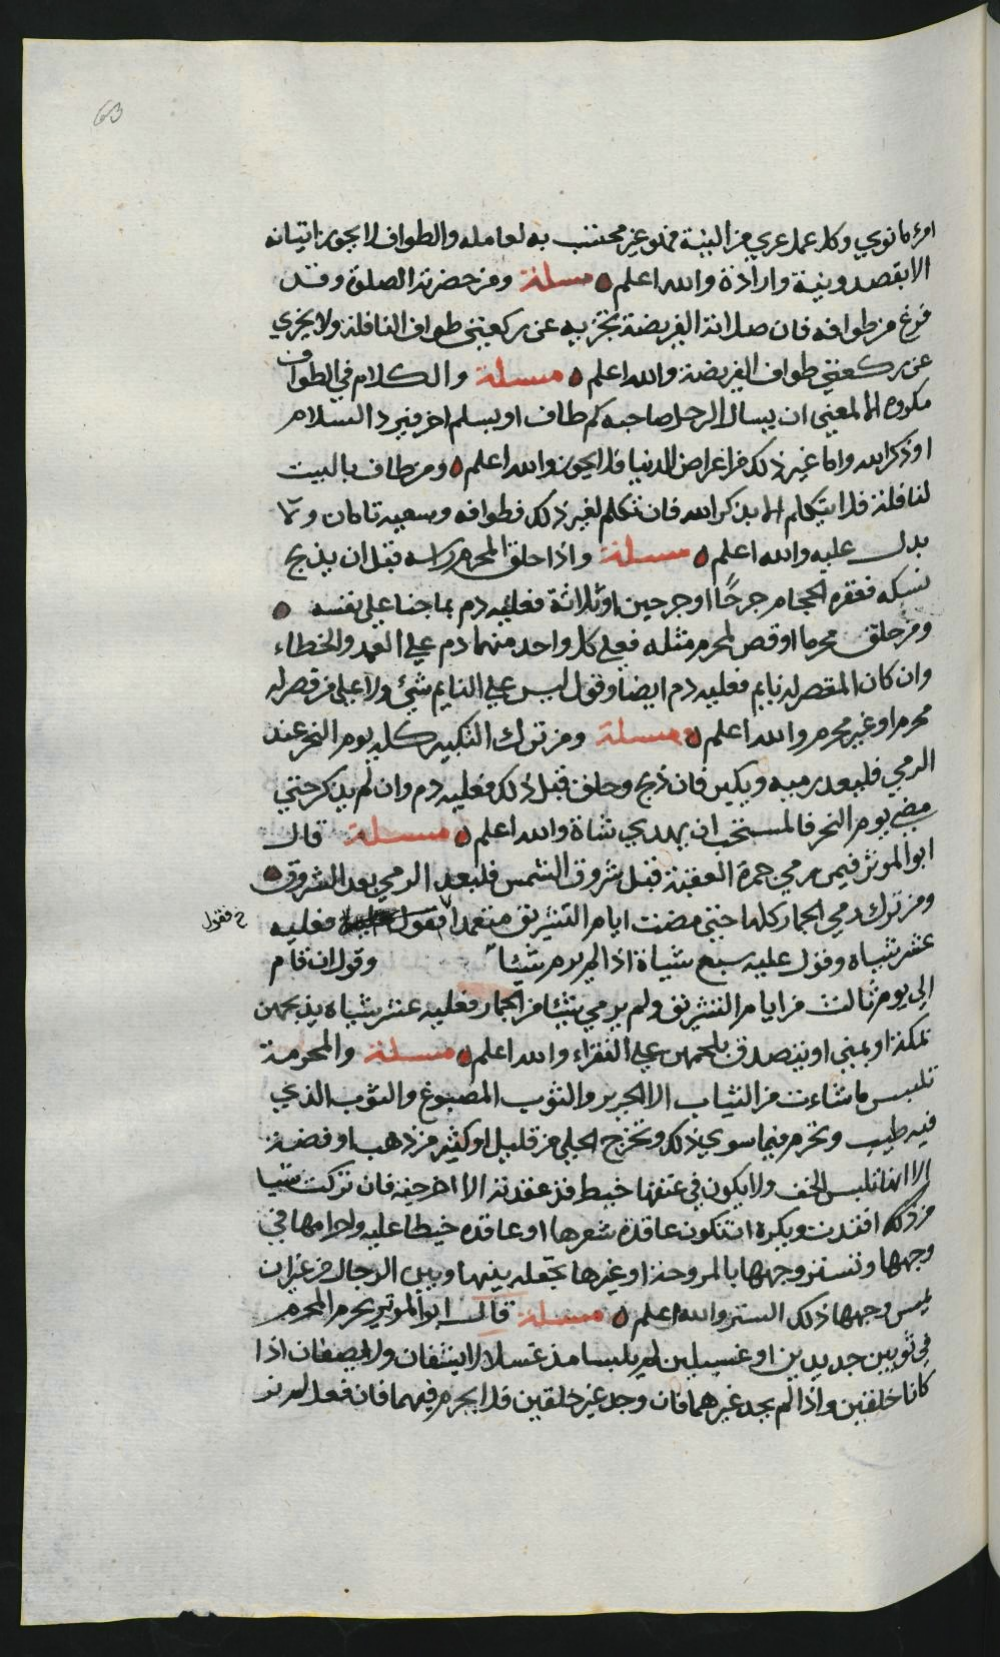 63
امرء ما نوي وكل عمل عري من النية فهو غير محتسب به لعامله والطواف لا يجوز اتيانه
الا بقصد ونية وارادة والله اعلم مسئلة ومن حضرته الصلوة وقد
فرغ من طوافه فان صلاته الفريضة تجزيه عن ركعتي طواف النافلة ولا يجزي
عن ركعتي طواف الفريضة والله اعلم مسئلة والكلام في الطواف
مكروه الا لمعني ان يسال الرجل صاحبه كم طاف او يسلم اخر فيرد السلام
او ذكر الله واما غير ذلك من اغراض الدنيا فلا يجوز والله اعلم ومن طاف بالبيت
لنافلة فلا يتكلم الا بذكر الله فان تكلم لغير ذلك فطوافه وسعيه تامان و
بدل عليه والله اعلم مسئلة واذا حلق المحرم راسه قبل ان يذبح
نسكه فعقره الحجام جرحًا او جرحين او ثلاثة فعليه دم بما جنا علي نفسه
ومن حلق محرما او قص لمحرم مثله فعلي كل واحد منهما دم علي العمد والخطاء
وان كان المقصر له نايم فعليه دم ايضا وقول ليس علي النايم شيئ ولا علي من قصر له
محرم او غير محرم والله اعلم مسئلة ومن ترك التكبير كله يوم النحر عند
الرمي فليعد رميه ويكبر فان ذبح وحلق قبل ذلك فعليه دم وان لم يذكر حتي
مضي يوم النحر فالمستحب ان يهدي شاة والله اعلم مسئلة قال
ابو الموثر فيمن رمي جمرة العقبة قبل شروق الشمس فليعد الرمي بعد الشروق
ومن ترك رمي الجمار كلها حتي مضت ايام التشريق متعمدا فقول فعليه
خ فقول
عشر شياه وقول عليه سبع شياة اذا لم يرم شيئاً وقول ان قام
الي يوم ثالث من ايام التشريق ولم يرمي شيئا من الجمار فعليه عشر شياه يذبحهن
بمكة او بمني او يتصدق بلحمهن علي الفقراء والله اعلم مسئلة والمحرمة
تلبس ما شاءت من الثياب الا الحرير والثوب المصبوغ والثوب الذي
فيه طيب وتحرم فيما سوي ذلك وتخرج الحلي من قليل او كثير من ذهب او فضة
الا انها تلبس الخف ولا يكون في عنقها خيط قد عقدته الا اخرجته فان تركت شيا
من ذلك افتدت ويكره ان تكون عاقدة شعرها او عاقده خيطا عليه واحرامها في
وجهها وتستر وجهها بالمروحة او غيرها تجعله بينها وبين الرجال من غير ان
يمس وجهها ذلك الستر والله اعلم مسئلة قال ابو الموثر يحرم المحرم
في ثوبين جديدين او غسيلين لم يلبسا مذ غسلا لا يشفان ولا يصفان اذا
كانا خلقين واذا لم يجد غيرهما فان وجد غير خلقين فلا يحرم فيهما فان فعل لم نر